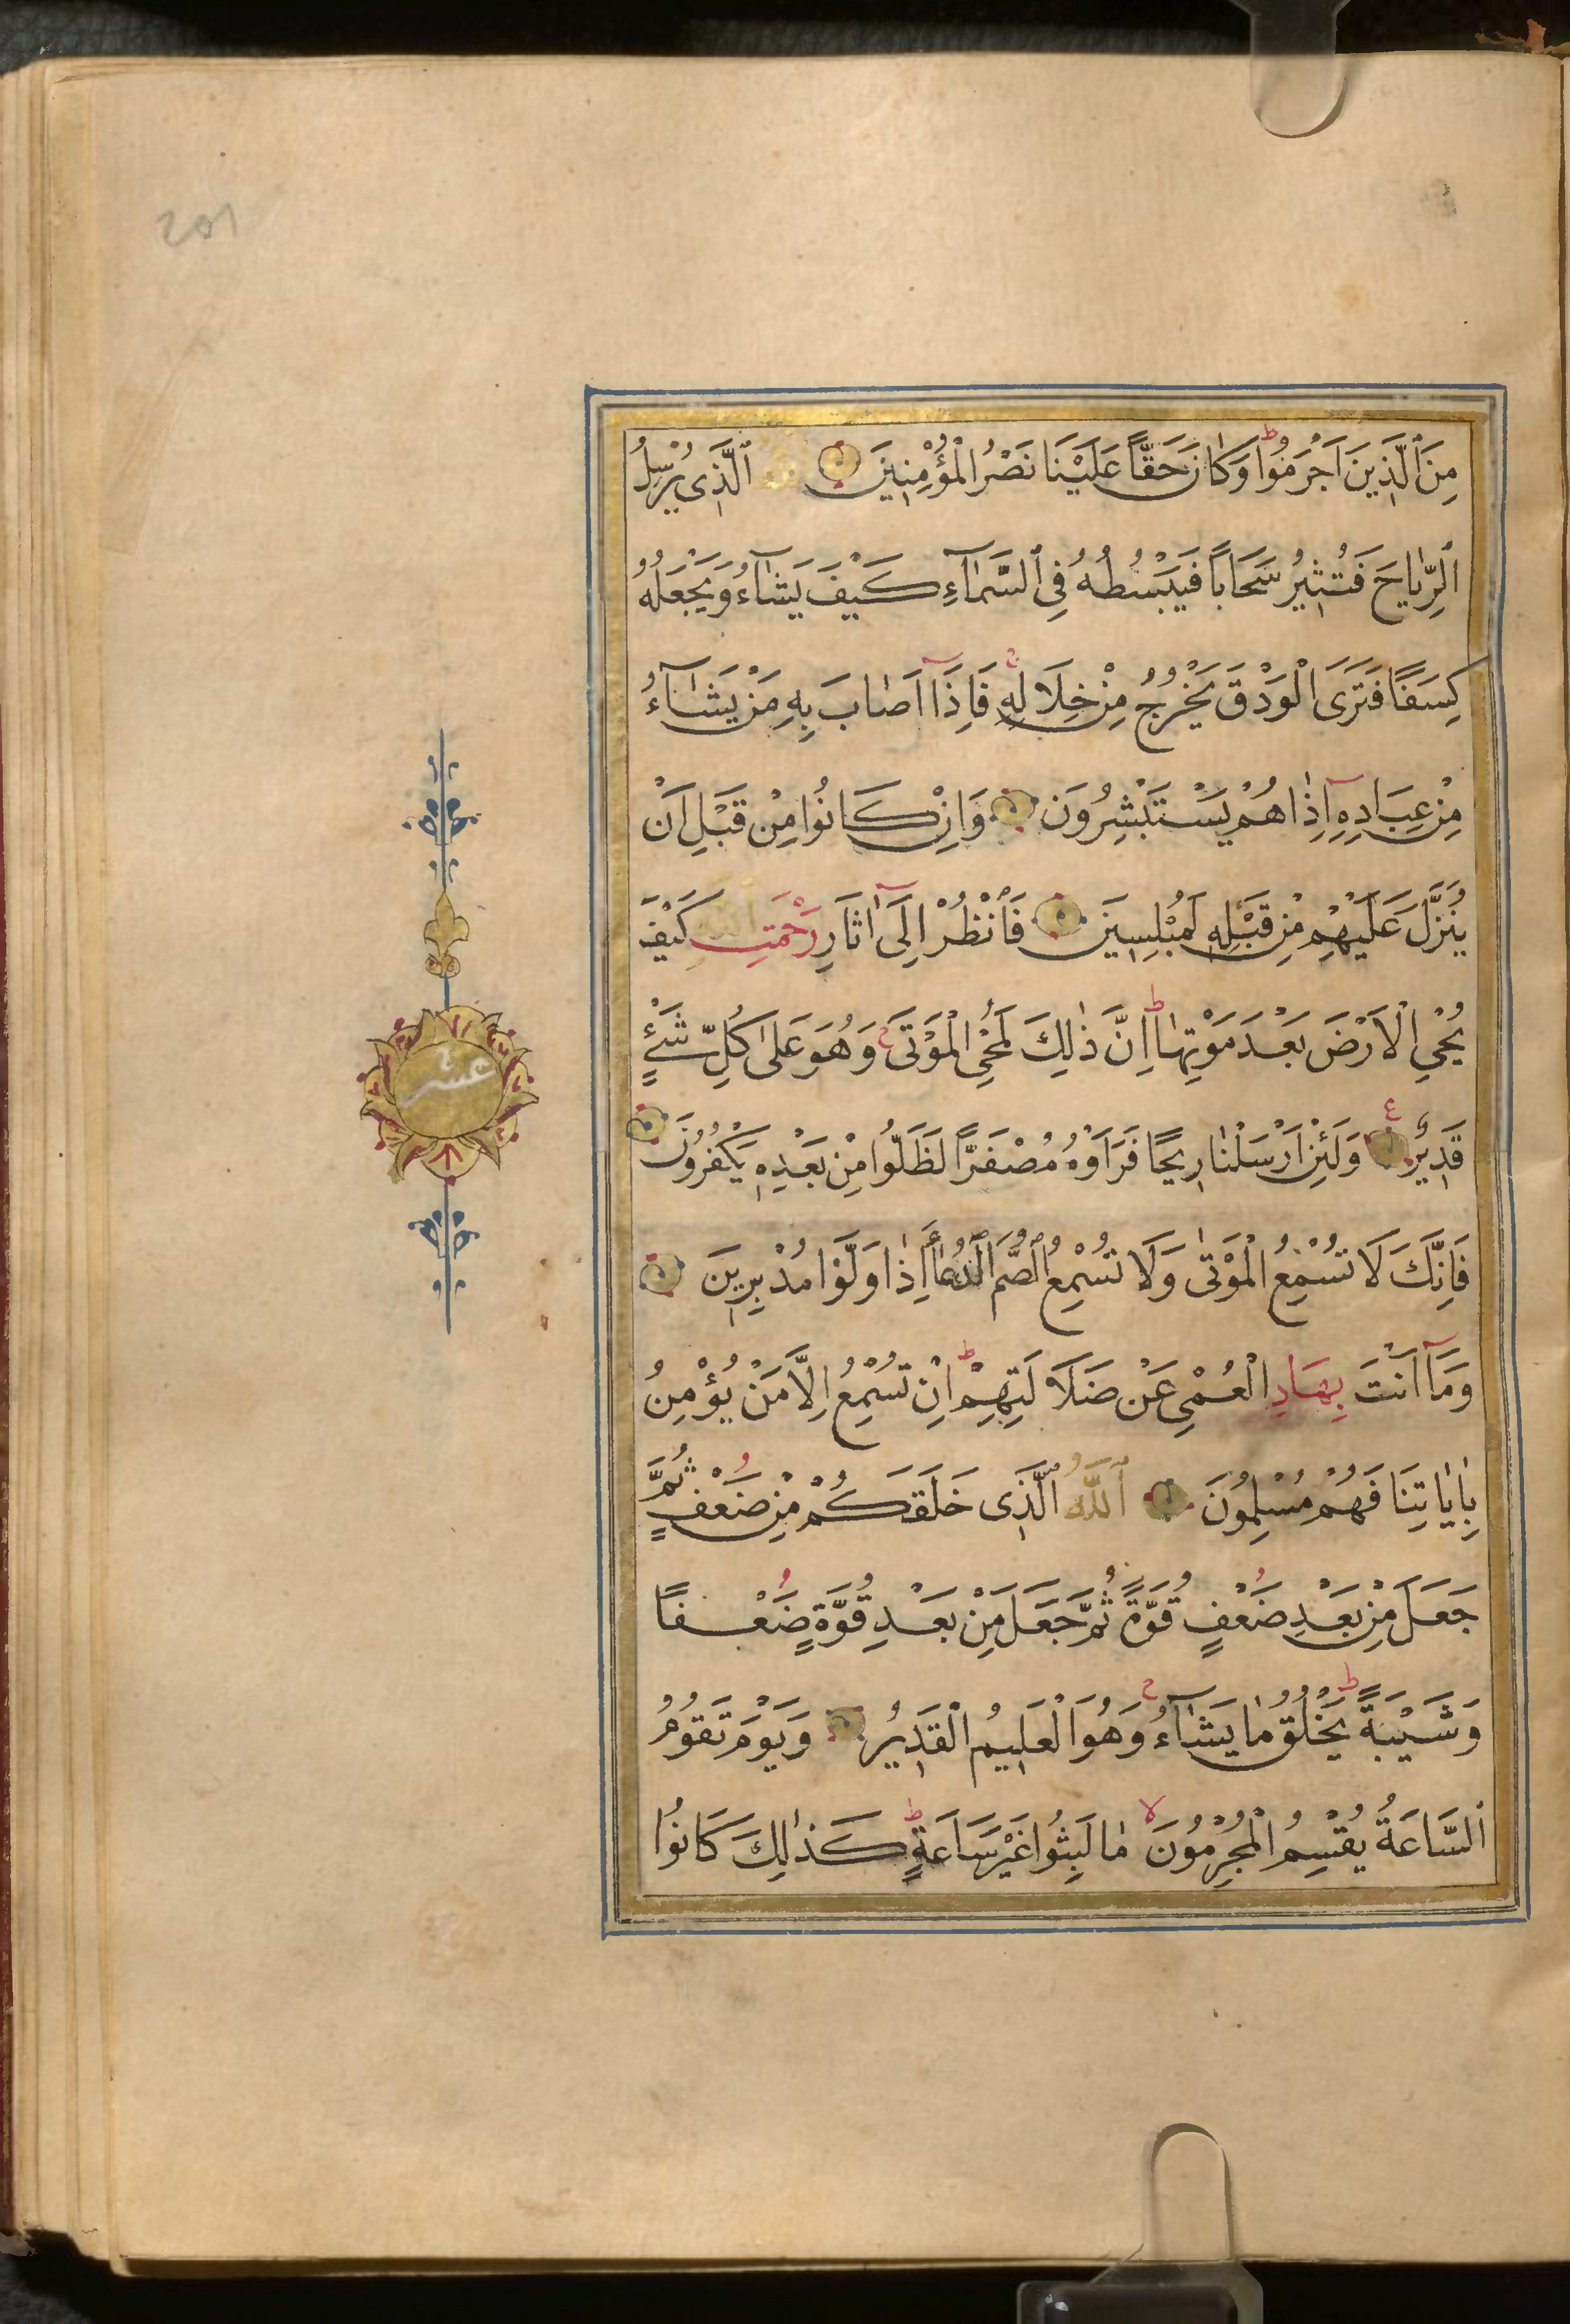 مِنَ الَّذِينَ اَجْرَمُوا وَكَانَ حَقًّا عَلَيْنَا نَصْرُ الْمُؤْمِنِينَ اَلَّذِى يُرْسِلُ
الرِّيَاحَ فَتُثِيرُ سَحَابًا فَيَبْسُطُهُ فِى السَّمَآءِ كَيْفَ يَشَآءُ وَيَجْعَلُهُ
كِسَفًا فَتَرَى الْوَدْقَ يَخْرُجُ مِنْ خِلَالِهِ فَاِذَآ اَصَابَ بِهِ مَنْ يَشَآءُ
مِنْ عِبَادِهِ اِذَا هُمْ يَسْتَبْشِرُونَ وَاِنْ كَانُوا مِنْ قَبْلِ اَنْ
يُنَزَّلَ عَلَيْهِمْ مِنْ قَبْلِهِ لَمُبْلِسِينَ فَانْظُرْ اِلَىٓ اٰثَارِ رَحْمَتِ الله كَيْفَ
يُحْىِ الْاَرْضَ بَعْدَ مَوْتِهَا اِنَّ ذٰلِكَ لَمُحْىِ الْمَوْتَى وَهُوَ عَلَى كُلِّ شَىْءٍ
قَدِيرٌ وَلَئِنْ اَرْسَلْنَا رِيحًا فَرَاَوْهُ مُصْفَرًّا لَظَلُّوا مِنْ بَعْدِهِ يَكْفُرُونَ
فَاِنَّكَ لَا تُسْمِعُ الْمَوْتَىٰ وَلَا تُسْمِعُ الصُّمَّ الدُّعَآءَ اِذَا وَلَّوْا مُدْبِرِينَ
وَمَآ اَنْتَ بِهَادِ الْعُمْىِ عَنْ ضَلَالَتِهِمْ اِنْ تُسْمِعُ اِلَّا مَنْ يُؤْمِنُ
بِاٰيَاتِنَا فَهُمْ مُسْلِمُونَ اَللّٰهُ الَّذِى خَلَقَكُمْ مِنْ ضَعْفٍ ثُمَّ
جَعَلَ مِنْ بَعْدِ ضَعْفٍ قُوَّةً ثُمَّ جَعَلَ مِنْ بَعْدِ قُوَّةٍ ضَعْفًا
وَشَيْبَةً يَخْلُقُ مَا يَشَآءُ وَهُوَ الْعَلِيمُ الْقَدِيرُ وَيَوْمَ تَقُومُ
السَّاعَةُ يُقْسِمُ الْمُجْرِمُونَ مَا لَبِثُوا غَيْرَ سَاعَةٍ كَذٰلِكَ كَانُوا
عشر
201